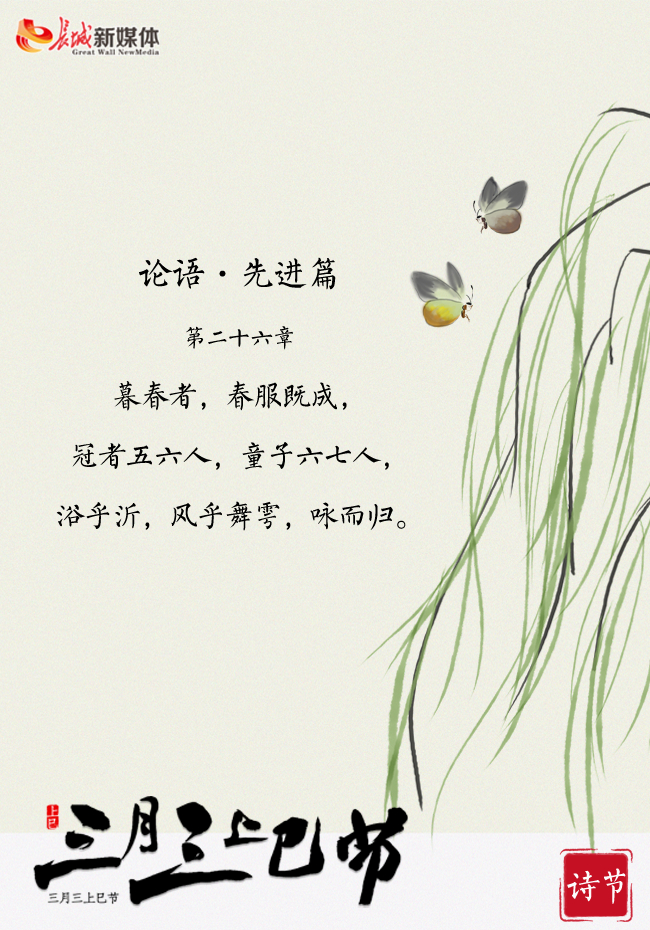 长城新媒体
Great Wall NewMedia
论语·先进篇
第二十六章
暮春者，春服既成，
冠者五六人，童子六七人，
浴乎沂，风乎舞雩，咏而归。
上巳
三月三上巳节
三月三上巳节
诗节